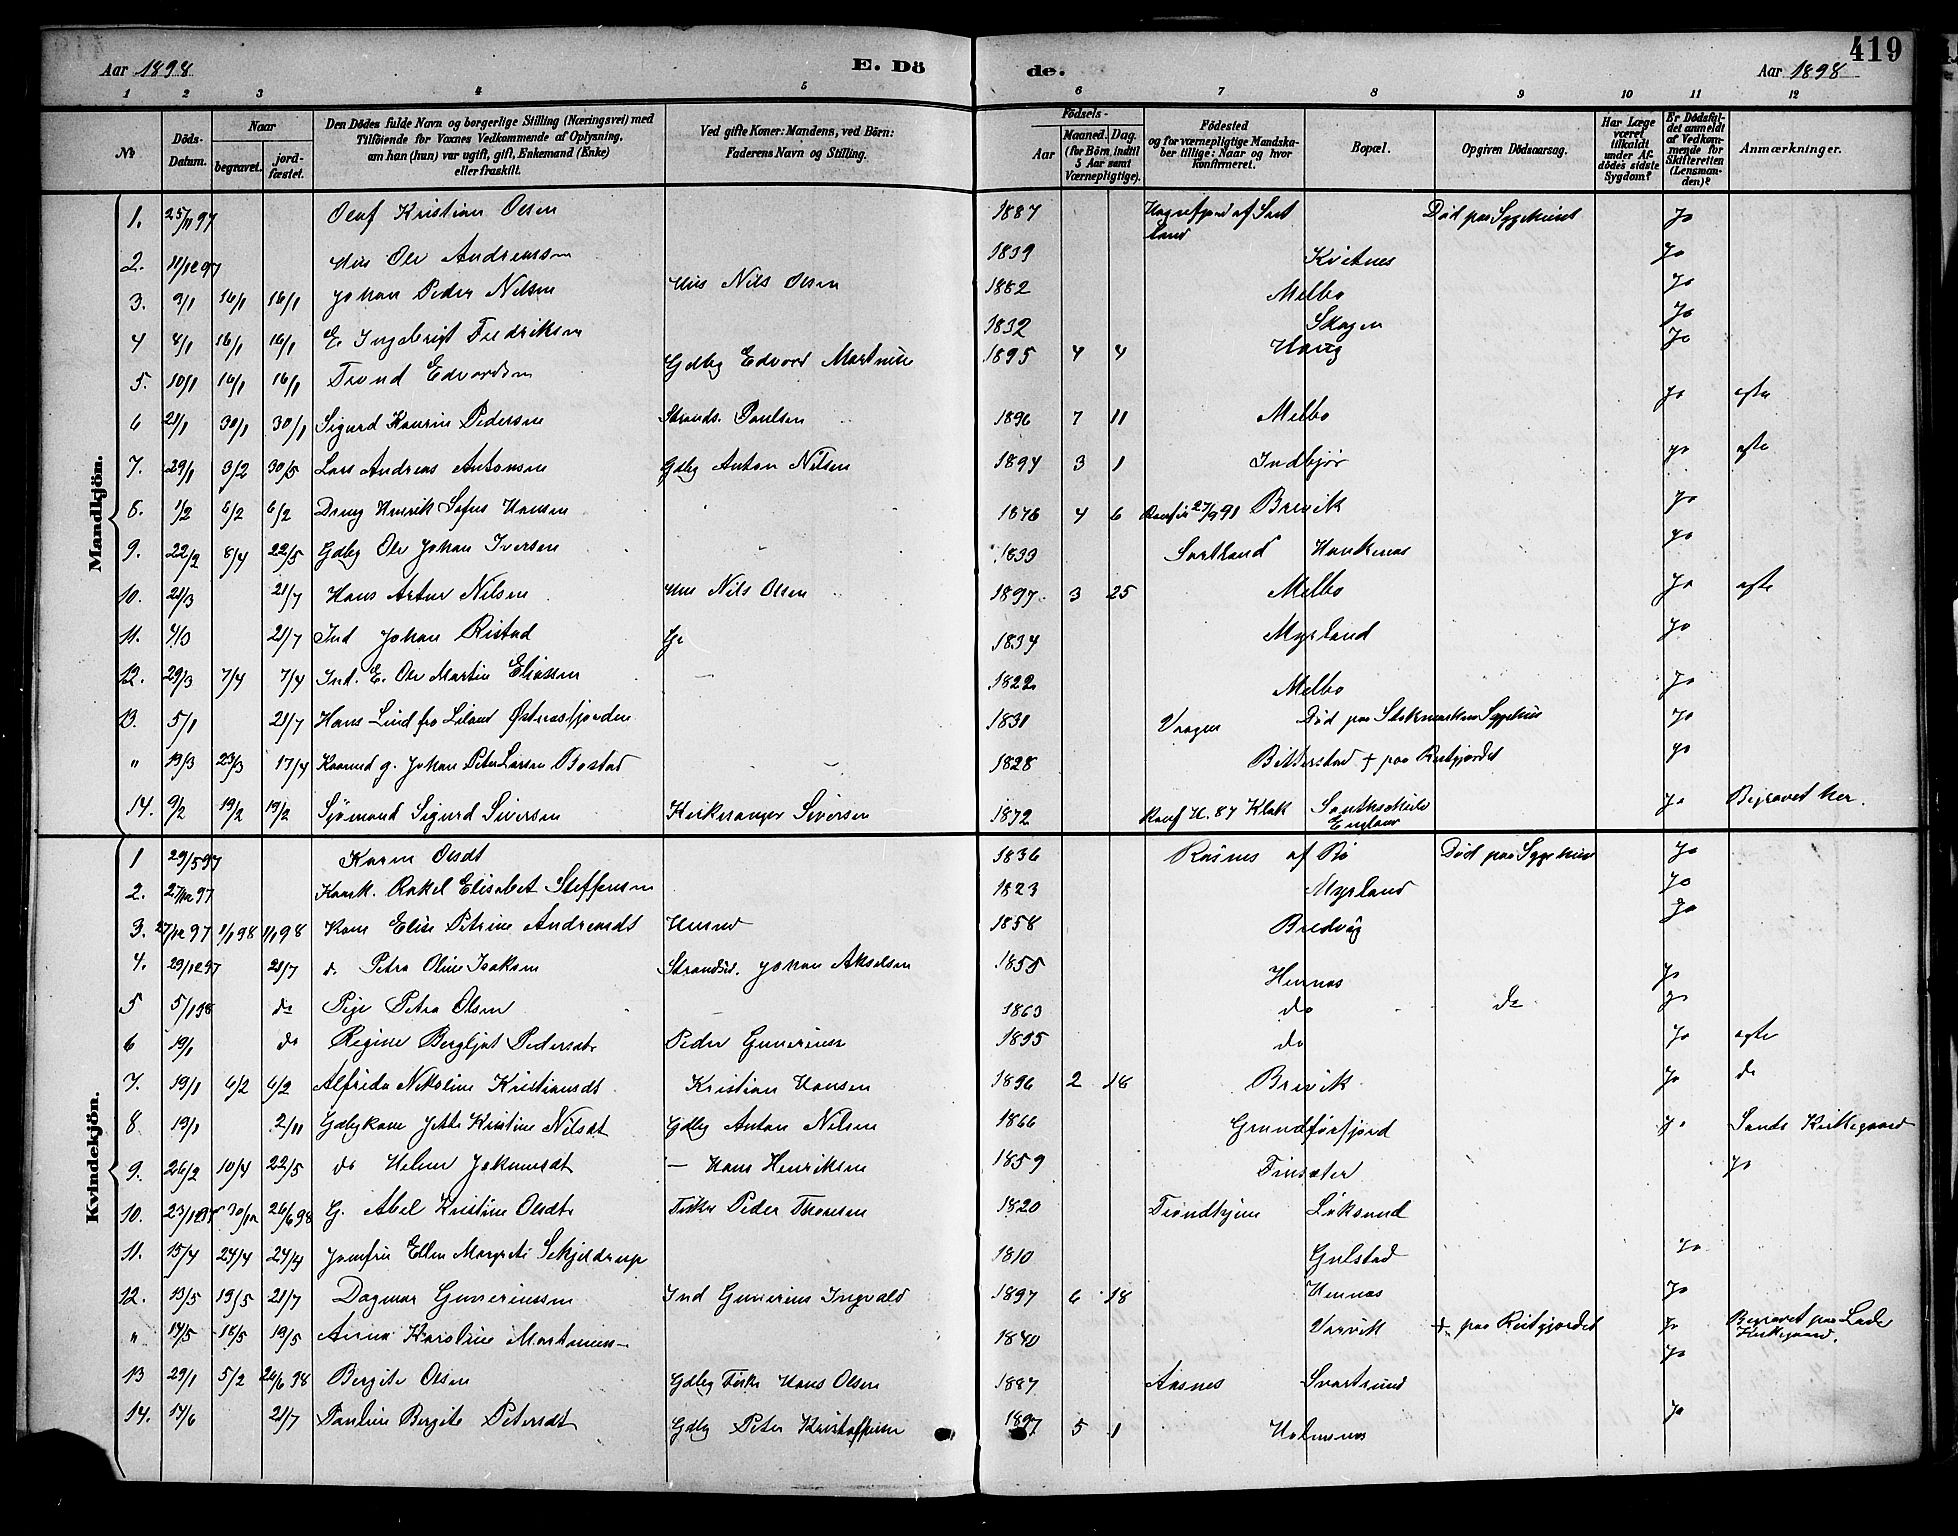 419
Aar 1898 E. Dö de. Aar 1898
1 2 3 4 5 6 7 8 9 10 11 12
№ Döds-Datum. Naar begravet. jordfæstet. Den Dödes fulde Navn og borgerlige Stilling (Næringsvei) med Tilföiende for Voxnes Vedkommende af Oplysning, om han (hun) var ugift, gift, Enkemand (Enke) eller fraskilt. Ved gifte Koner: Mandens, ved Börn: Faderens Navn og Stilling. Födsels- Aar Maaned. Dag. (for Börn indtil 5 Aar samt Værnepligtige). Födested og for værnepligtige Mandskaber tillige: Naar og hvor konfirmeret. Bopæl. Opgiven Dödsaarsag. Har Læge været tilkaldt under Afdödes sidste Sygdom? Er Dödsfaldet anmeldt af Vedkommende for Skifteretten (Lensmanden)? Anmærkninger.
Mandkjön.
1. 25/11 97 Olaf Kristian Olsen 1887 Død paa Sygehuset Jo
2. 11/12 97 Hus Ole Andreassen 1839 Kvitnes Jo
3. 9/1 16/1 16/1 Johan Peder Nilsen Hus Nils Olsen 1882 Melbo Jo
4 4/1 16/1 16/1 E. Ingebrigt Fredriksen 1832 Skagen Jo
5. 10/1 16/1 16/1 Trond Edvardsen Gdbg Edvard Martinus 1895 4 4 Haug Jo
6 21/1 30/1 30/1 Sigurd Pedersen Strands. Paulsen 1896 7 11 Melbo Jo egte
7. 29/1 3/2 30/5 Lars Andreas Antonsen Gdbg Anton Nilsen 1894 3 1 Indbjør Jo egte
8. 1/2 6/2 6/2 Dreng Henrik Sofus Hansen 1876 4 6 27/9 91 Brevik Jo
9. 22/2 8/4 22/5 Gdbg Ole Johan Iversen 1833 Sortland Haukenes Jo
10. 21/3 21/7 Hans Artur Nilsen Hus Nils Olsen 1897. 3 25 Melbo Jo egte
11. 4/3 21/7 Ind Johan Ristad 1834 Myrland Jo
12. 29/3 7/4 7/4 Ind. E. Ole Martin Eliassen 1822 Melbo Jo
13. 5/1 21/7 Hans Lind fra Liland Østnesfjorden 1831 Vaagen Død paa Stokmarknes Sygehus Jo
" 19/3 23/3 17/4 Kaarmd g. Johan Peter Larsen Bostad 1828 Bitterstad + paa Ristgjordet Jo
14. 9/2 19/2 19/2 Sjømand Sigurd Siversen Kirkesanger Siversen 1872 Konf H. 87 Klak England Jo Begravet her.
Kvindekjön.
1 29/5 97 Karen Olsdt 1836 Rasnes af Bø Død paa Sygehus Jo
2. 27/12 97 Kaark. Rakel Elisabet Steffensen 1823 Myrland Jo
3. 27/12 97 1/1 98 1/1 98 Kone Elise Petrine Andreasdt Husmd 1858 Bredvig Jo
4. 29/12 97 21/7 d. Petra Oline Isaksen Strandsd. Johan Akselsen 1855 Hennes Jo
5 5/1 98 do Pige Petra Olsen 1863 do do Jo
6 19/1 do Regine Bergljot Pedersdt Peder Gunerius 1895 do Jo egte
7. 19/1 6/2 6/2 Alfrida Nikoline Kristiansdt Kristian Hansen 1896 2 18 Brevik Jo do
8 19/1 2/11 Gdbgkone Jette Kristine Nilsdt Gdbg Anton Nilsen 1866 Grundførfjord Jo Sands Kirkegaard
9. 26/2 10/4 22/5 do Johannesdt — Hans Henriksen 1859 Finsæter Jo
10. 30/12 26/6 98 G. Abel Kristine Olsdt Fisker Peder Thomsen 1820 Trondhjem Loksund
11. 15/4 24/4 24/4 Jomfru Ellen Margrete Schjelderup 1810 Gulstad Jo
12. 13/5 19/5 21/7 Dagmar Gunerius Ind Gunerius Ingvald 1897 6 18 Hennes Jo
" 14/5 18/5 19/5 Anna Karoline 1840 Vorvik + paa Ristgjordet Jo Begravet paa Lade Kirkegaard.
13 29/1 5/2 26/6 98 Bergite Olsen Gdbg Fisker Hans Olsen 1887 Aasnes Svartsund Jo
14. 14/6 21/7 Pauline Bergite Petersdt Gdbg Peter Kristoffersen 1897 5 1 Holmsnes Jo